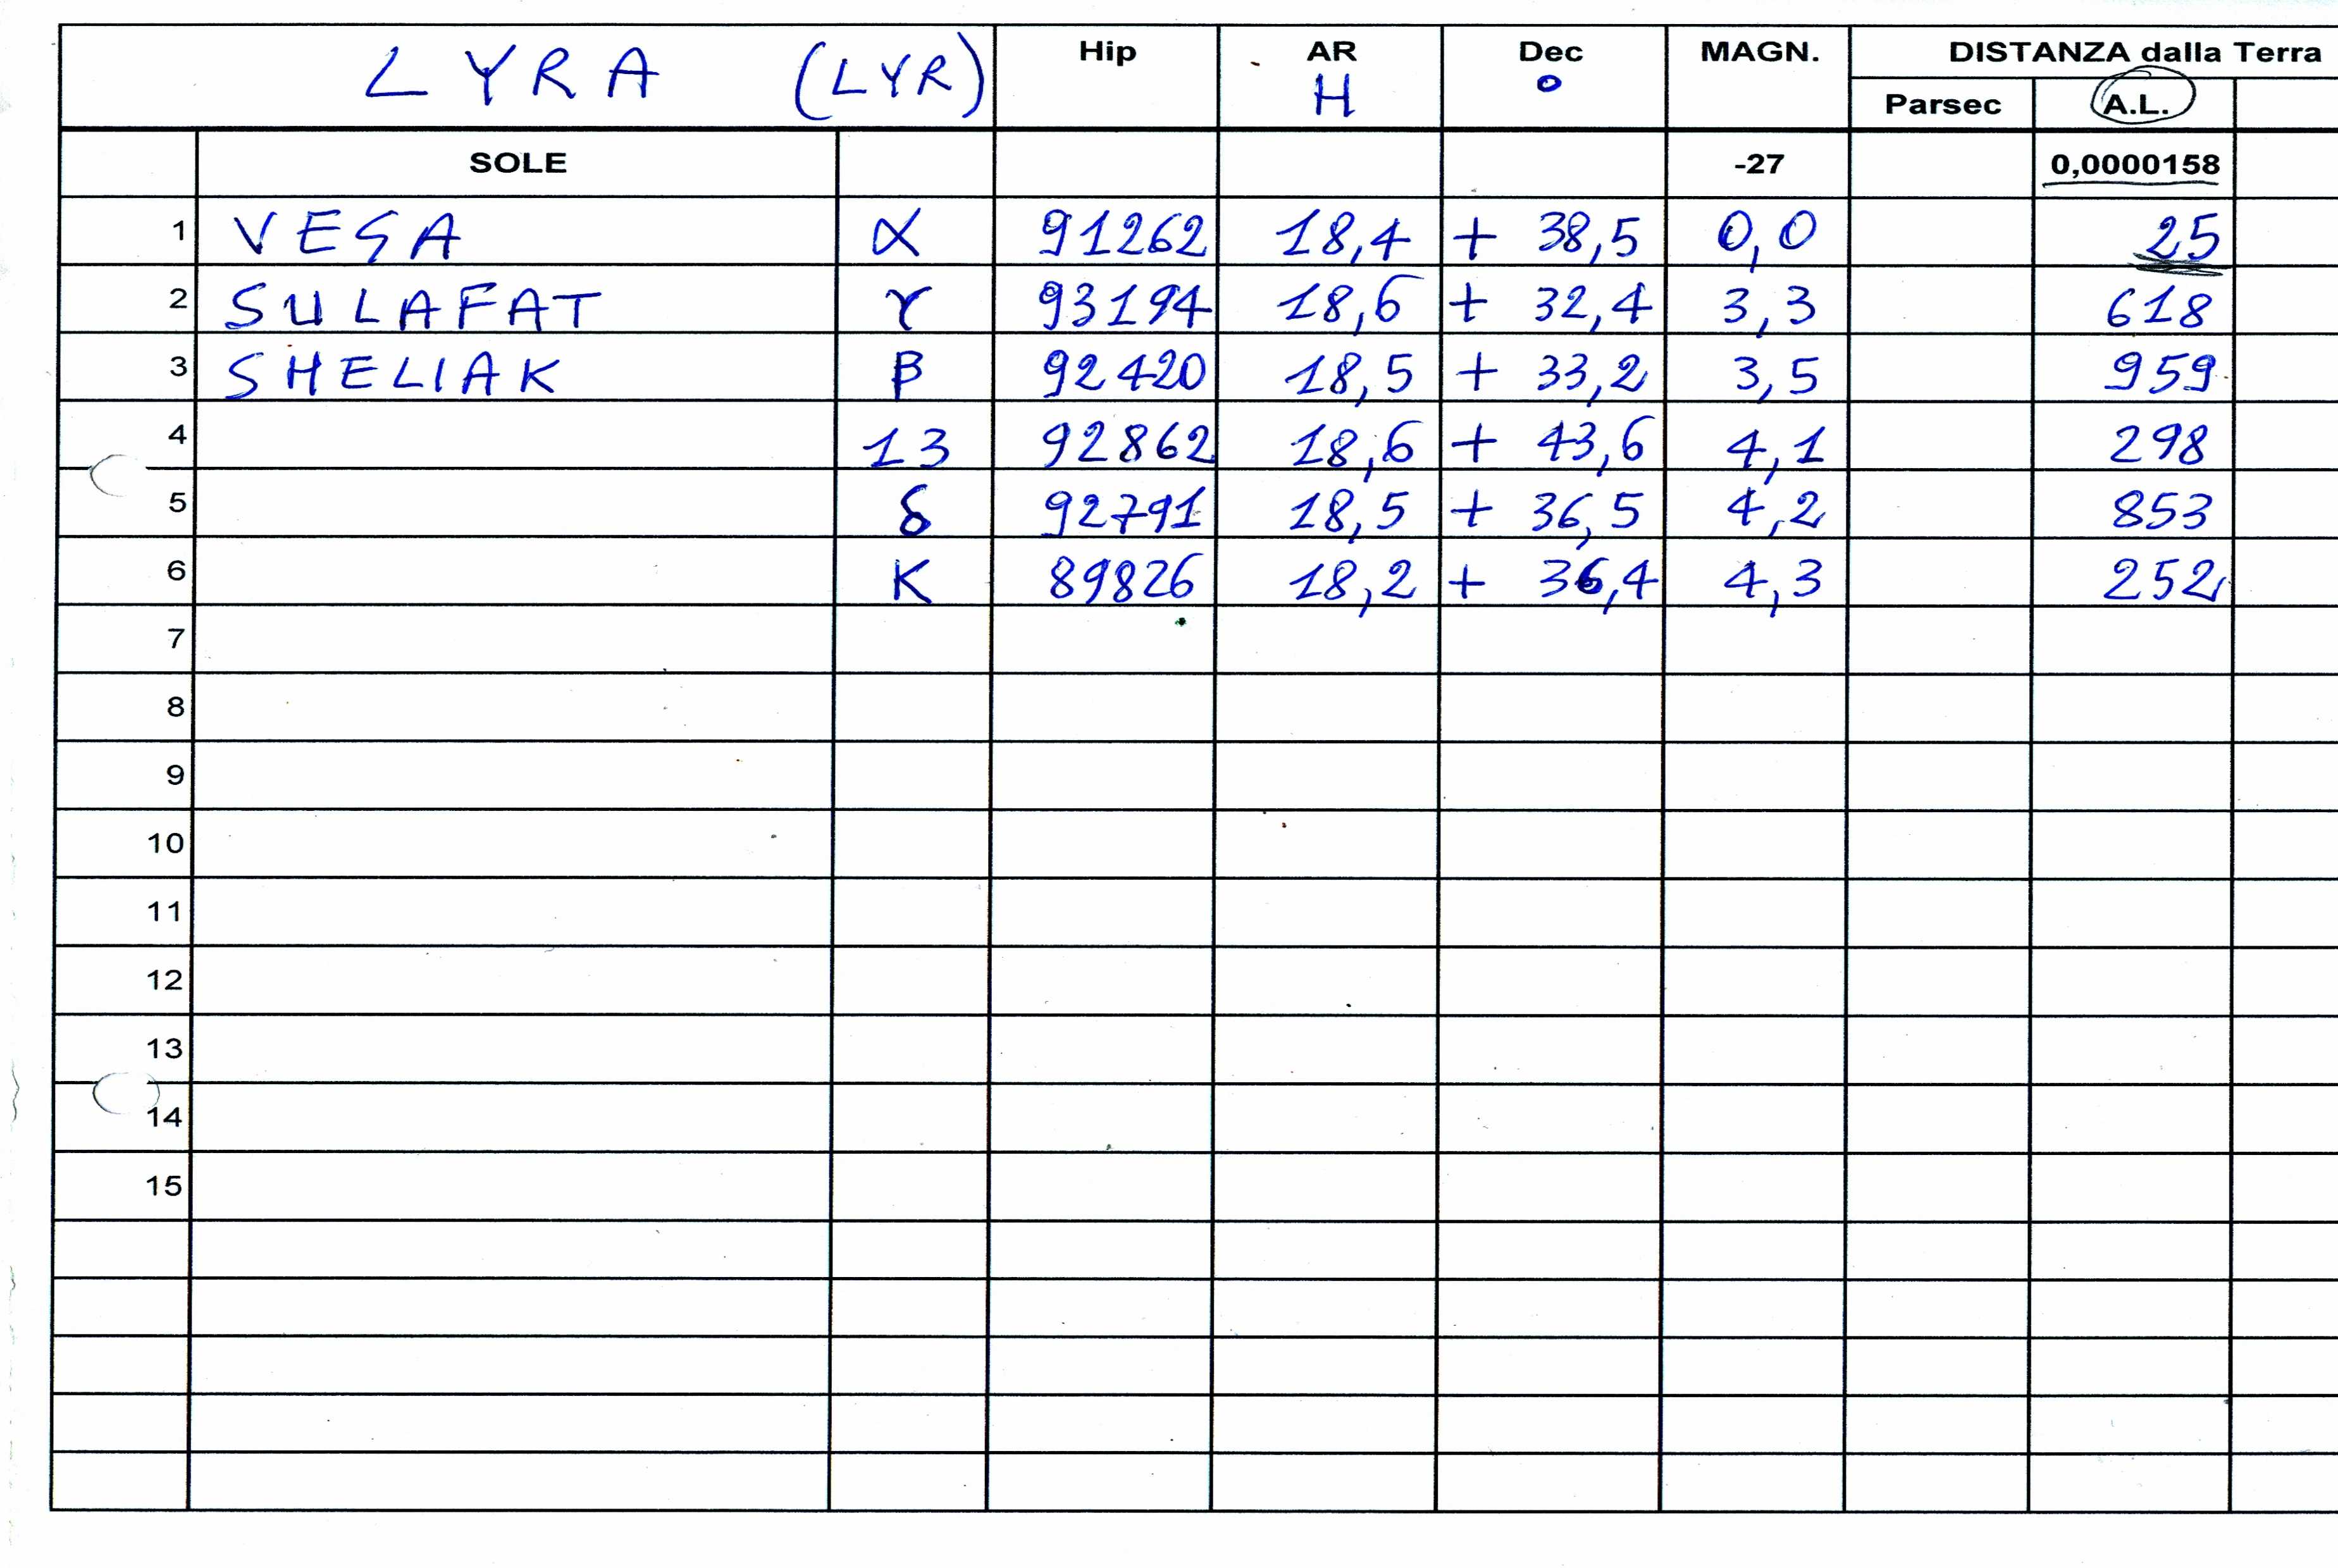 LYRA (LYR) Hip AR Dec MAGN. DISTANZA dalla Terra
H ° Parsec A.L.
SOLE -27 0,0000158
1 VEGA α 91262 18,4 + 38,5 0,0 25
2 SULAFAT γ 93194 18,6 + 32,4 3,3 618
3 SHELIAK β 92420 18,5 + 33,2 3,5 959
4 13 92862 18,6 + 43,6 4,1 298
5 δ 92791 18,5 + 36,5 4,2 853
6 K 89826 18,2 + 36,4 4,3 252
7
8
9
10
11
12
13
14
15